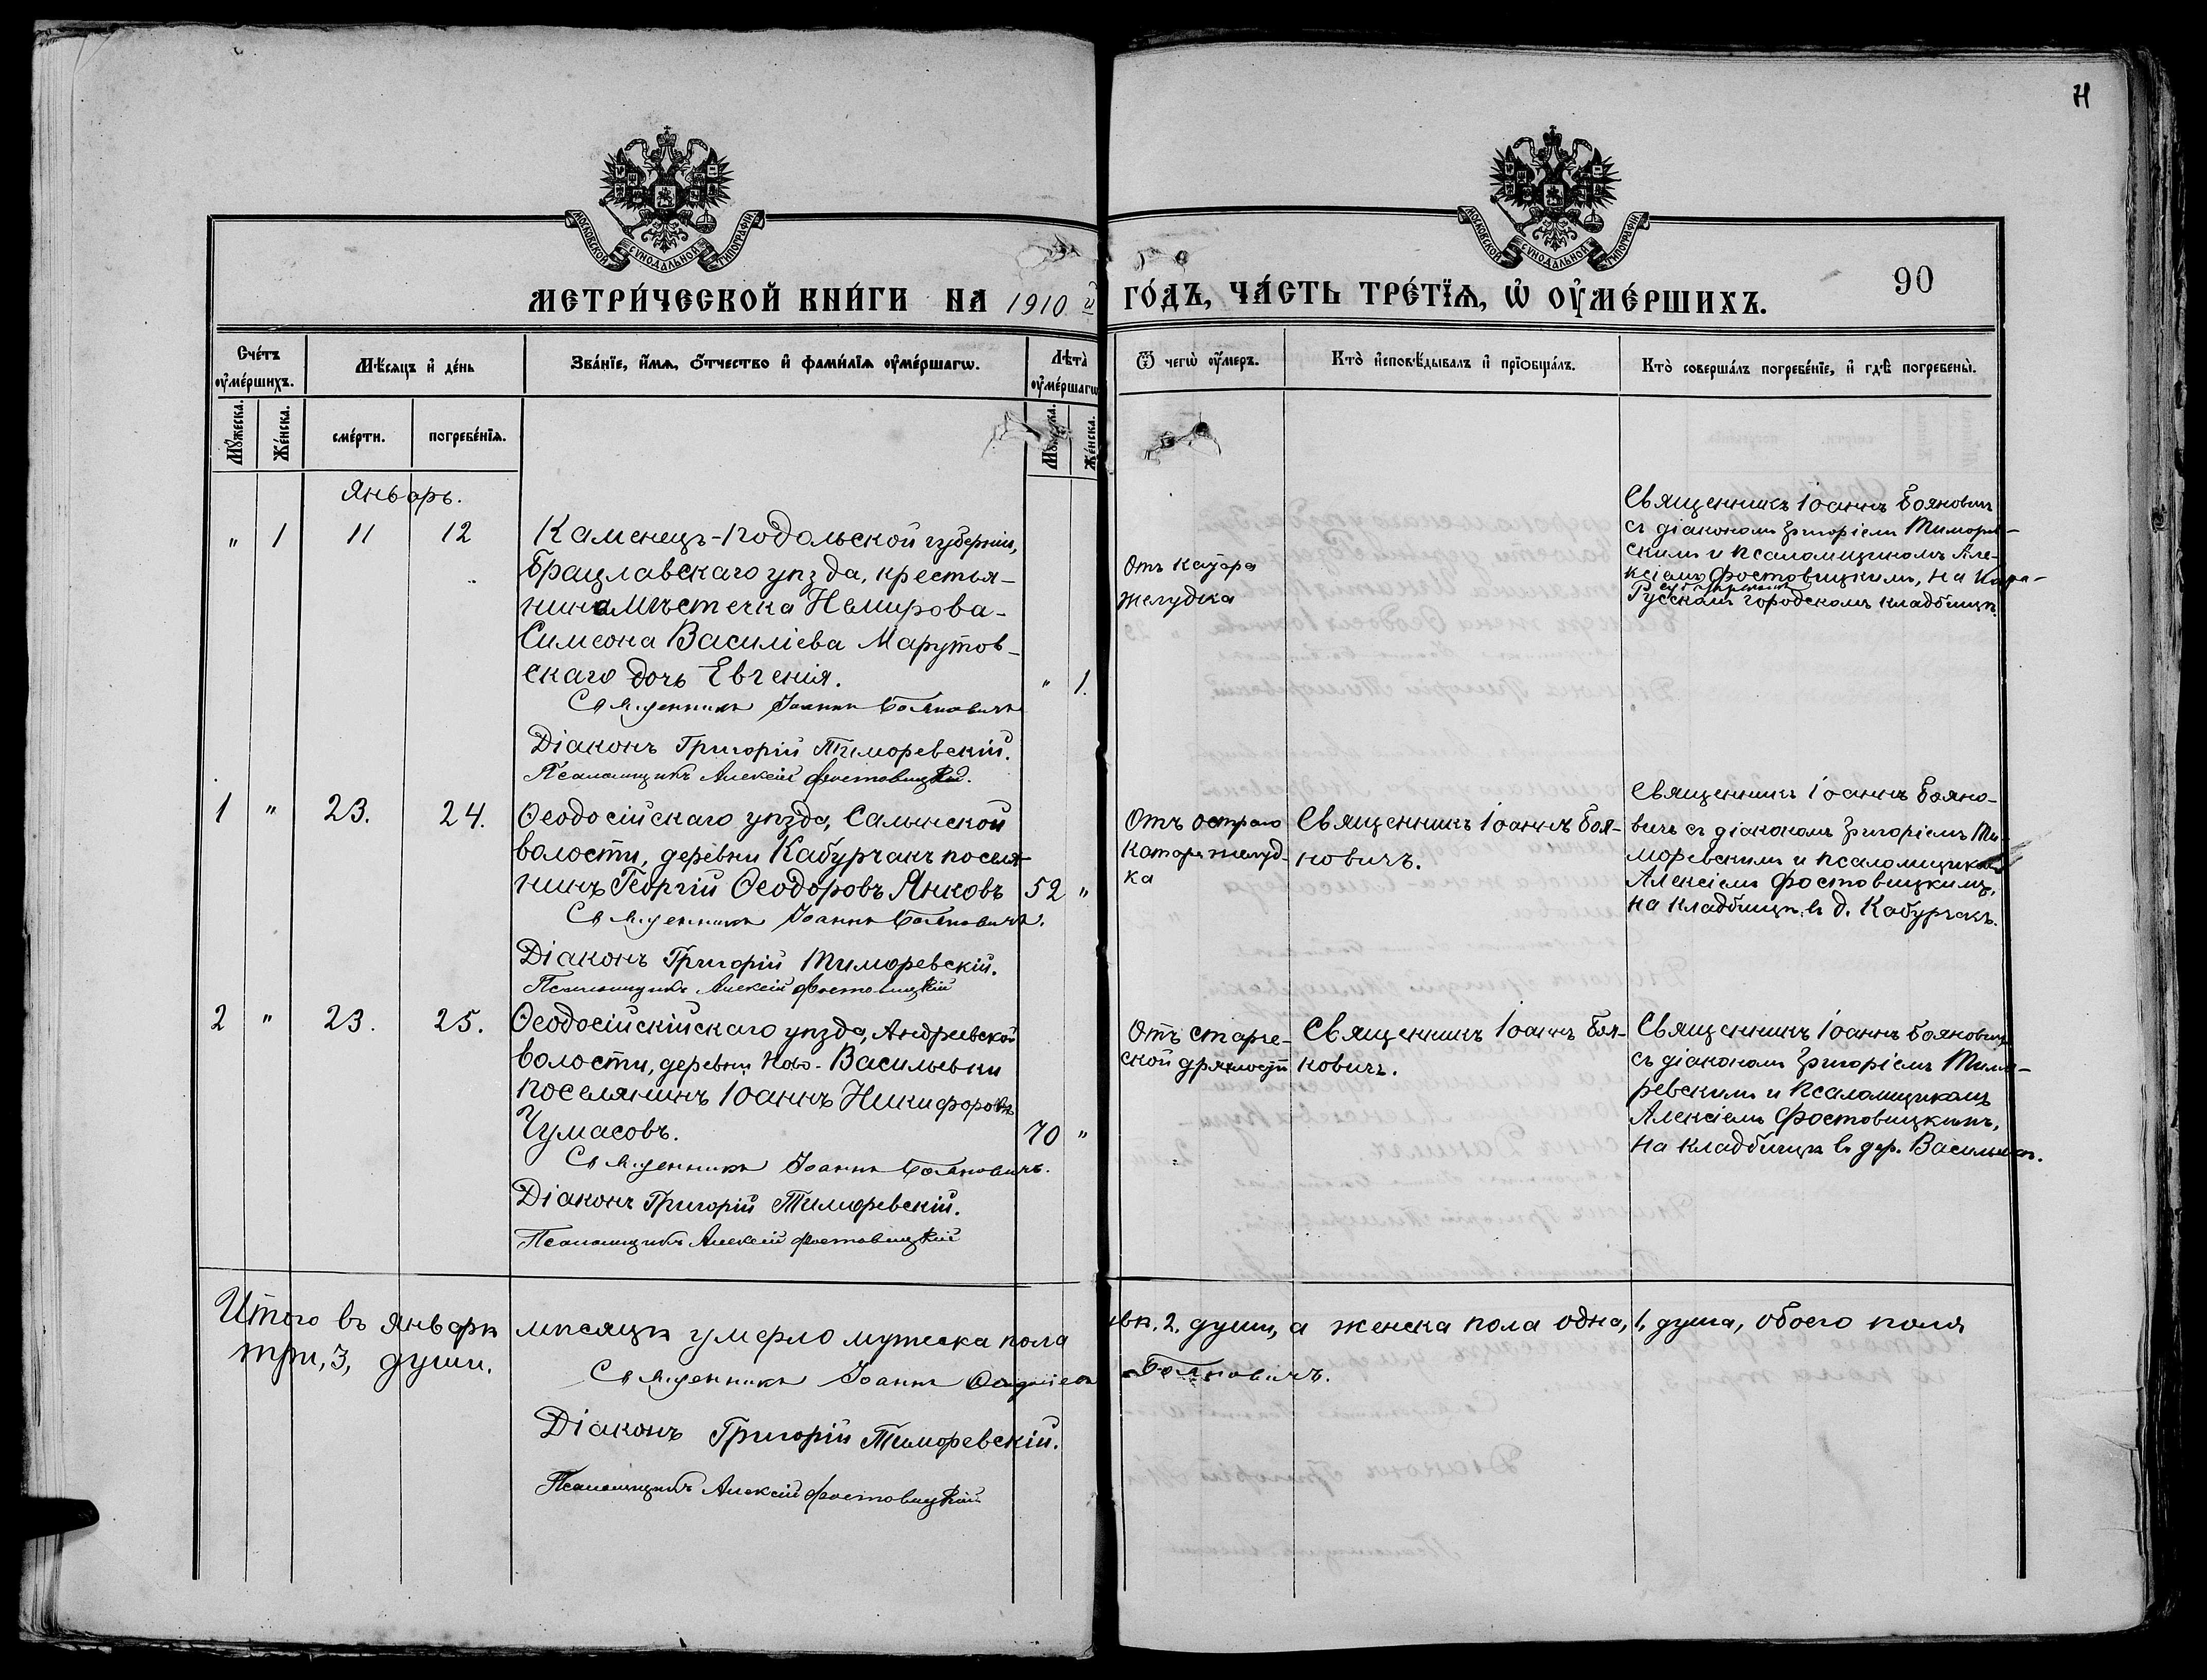 Н
90
МОСКОВСКОЙ СѴНОДАЛЬНОЙ ТИПОГРАФІИ
МОСКОВСКОЙ СѴНОДАЛЬНОЙ ТИПОГРАФІИ
МЕТРИ́ЧЕСКОЙ КНИ́ГИ НА 1910 й ГО́ДЪ, ЧА́СТЬ ТРЕ́ТЇѦ, Ѡ҆ ОУ҆МЕ́РШИХЪ.
Сче́тъ оу҆ме́ршихъ.
Мѣ́сяцъ и҆ де́нь
Зва́нїе, и҆́мѧ, ѻ҆́тчество и҆ фами́лїѧ оу҆ме́ршагѡ.
Лѣта̀ оу҆ме́ршагѡ
Ѿ чегѡ̀ оу҆́меръ.
Кто̀ и҆сповѣ́дывалъ и҆ прїѡбща́лъ.
Кто̀ соверша́лъ погребе́нїе, и҆ гдѣ̀ погребены̀.
Мꙋ́жеска.
Же́нска.
сме́рти.
погребе́нїѧ.
Мꙋ́жеска.
Же́нска.
Январь.
" 1 11 12
Каменецъ-Подольской губерніи,
Брацлавскаго уѣзда, крестья-
нина мѣстечка Немирова-
Симеона Василіева Марутов-
скаго дочь Евгенія.
" 1.
Священникъ Іоаннъ Бояновичъ
Діаконъ Григорій Тиморевскій.
Псаломщикъ Алексій Фостовицкій.
Отъ
желудка
Священникъ Іоаннъ Бояновичъ
съ діакономъ Григоріемъ Тиморев-
скимъ и псаломщикомъ Але-
ксіемъ Фостовицкимъ, на Кара-
субазарскомъ
Русскомъ городскомъ кладбищѣ.
1 " 23. 24.
Ѳеодосійскаго уѣзда, Салынской
волости, деревни Кабурчакъ поселя-
нинъ Георгій Ѳеодоровъ Янковъ
52 "
Священникъ Іоаннъ Бояновичъ.
Діаконъ Григорій Тиморевскій.
Псаломщикъ Алексій Фостовицкій
Отъ остраго
катара желуд-
ка
Священникъ Іоаннъ Боя-
новичъ.
Священникъ Іоаннъ Бояно-
вичъ съ діакономъ Григоріемъ Ти-
моревскимъ и псаломщикомъ
Алексіемъ Фостовицкимъ,
на кладбищѣ въ д. Кабурчакъ.
2 " 23. 25.
Ѳеодосійскійскаго уѣзда, Андреевской
волости, деревни Ново-Васильевки
поселянинъ Іоаннъ Никифоровъ
Чумасовъ.
70 "
Священникъ Іоаннъ Бояновичъ.
Діаконъ Григорій Тиморевскій.
Псаломщикъ Алексій Фостовицкій
Отъ старче-
ской дряхлости
Священникъ Іоаннъ Боя-
новичъ.
Священникъ Іоаннъ Бояновичъ
съ діакономъ Григоріемъ Тимо-
ревскимъ и псаломщикомъ
Алексіемъ Фостовицкимъ,
на кладбищѣ въ дер. Васильевкѣ.
Итого въ январѣ мѣсяцѣ умерло мужеска пола двѣ, 2, души, а женска пола одна, 1, душа, обоего пола
три, 3, души.
Священникъ Іоаннъ Бояновичъ.
Діаконъ Григорій Тиморевскій.
Псаломщикъ Алексій Фостовицкій